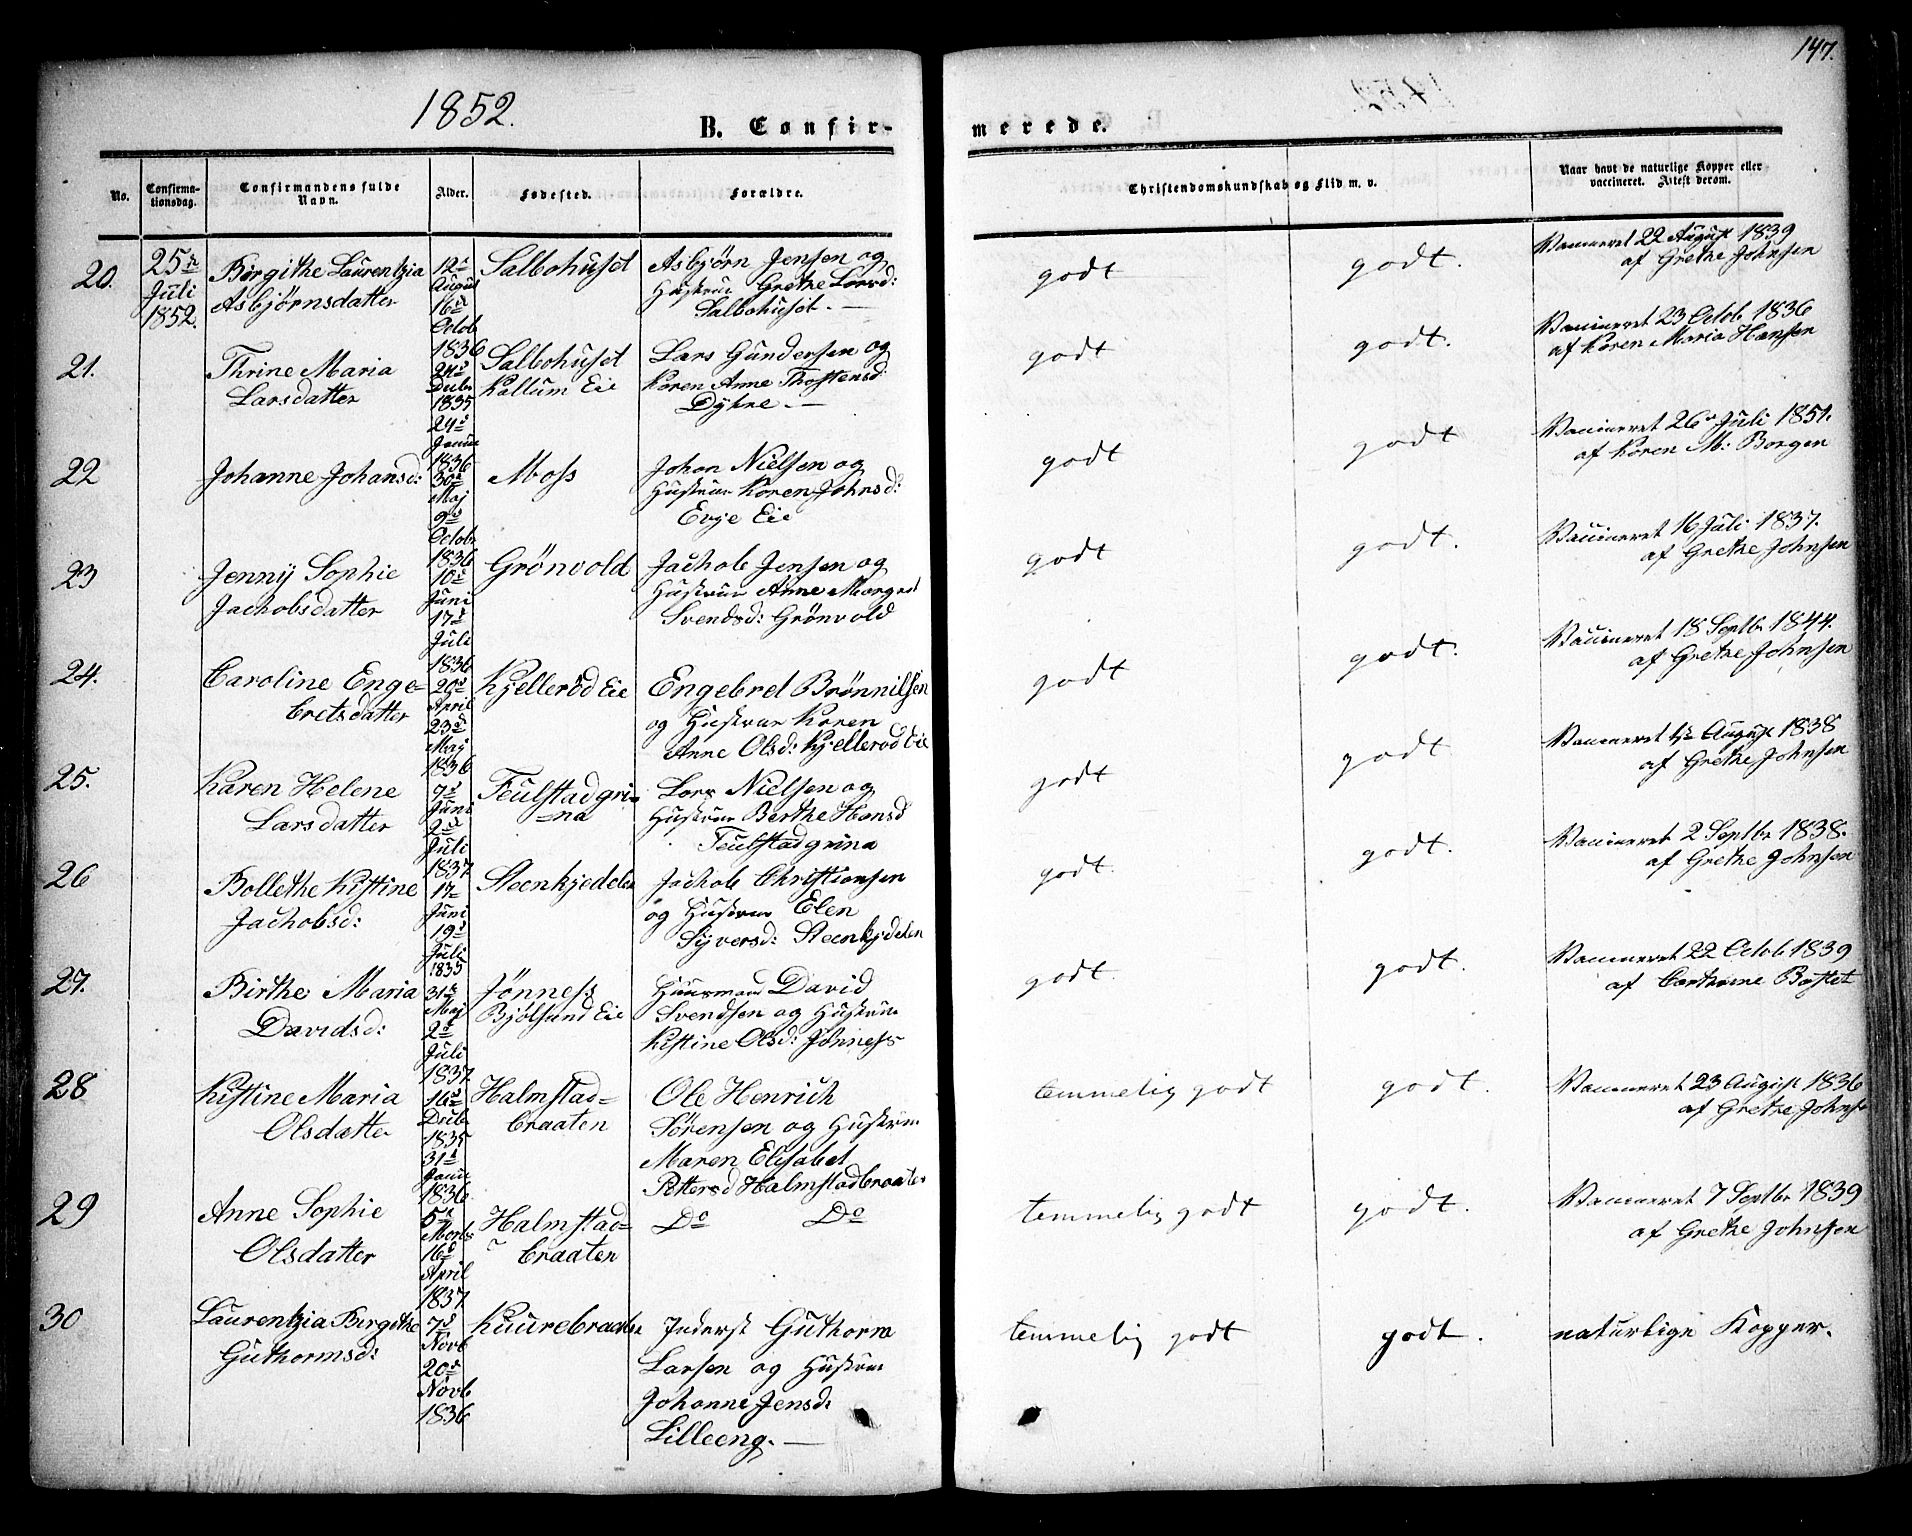 147.
1852.
B. Confir-
merede.
No.
Confirma-
tionsdag.
Confirmandens fulde
Navn.
Alder.
Fødested.
Forældre.
Christendomskundskab og Flid m. v.
Naar havt de naturlige Kopper eller
vaccineret. Attest derom.
20.
25de
Juli
1852.
Birgithe Laurentzia
Asbjørnsdatter
12te
August
16de
Octob
1836
Salbohuset
Asbjørn Jensen og
Hustrue Grethe Larsd:
Salbohuset. —
godt
godt.
Vaccineret 22 August 1839
af Grethe Johnsen
21.
Thrine Maria
Larsdatter
24de
Decbr
1835
24de
Januar
1836
Salbohuset
Kallum Eie
Lars Gundersen og
Karen Anne Thostensd:
Dykne —
godt
godt.
Vaccineret 23 Octob 1836
af Karen Maria Hansen
22
Johanne Johansd:
30te
Maj
9de
Octobr
1836
Moss
Johan Nielsen og
Hustrue Karen Johnsd:
Evje Eie
godt
godt
Vaccineret 26 Juli 1851.
af Karen M: Borgen
23
Jenny Sophie
Jachobsdatter
10de
Juni
17de
Juli
1836
Grönvold
Jachob Jensen og
Hustrue Anne Margret
Svendsd: Grönvold
godt
godt.
Vaccineret 16 Juli 1837.
af Grethe Johnsen
24.
Caroline Enge-
bretsdatter
20de
April
23de
Maj
1836
Kjelleröd Eie
Engebret Brønnilsen
og Hustrue Karen
Anne Olsd: Kjelleröd Eie
godt
godt.
Vaccineret 18 Septbr 1844.
af Grethe Johnsen
25.
Karen Helene
Larsdatter
7de
Juni
2de
Juli
1837
Feulstadgri-
=na
Lars Nielsen og
Hustrue Berthe Hansd
Feulstadgrina
godt
godt
Vaccineret August 1838
af Grethe Johnsen
26
Bollethe Kistine
Jachobsd:
17de
Juni
19de
Juli
1835
Steenkjedelen
Jachob Christiansen
og Hustrue Elen
Syversd: Steenkjdelen
godt.
godt.
Vaccineret 2 Septbr 1838.
af Grethe Johnsen
27.
Birthe Maria
Davidsd:
31te
Maj
2de
Juli
1837
Jönness
Bjölsund Eie
Huusmand David
Svendsen og Hustrue
Kistine Olsd: Jönness
godt.
godt.
Vaccineret 22 Octob 1839
af Cathrine Bastet
28
Kistine Maria
Olsdatter
16de
Decbr
1835
31te
Janu
1836
Halmstad=
braaten
Ole Henrich
Sörensen og Hustrue
Maren Elisabet
Pettersd Halmstadbraaten
temmelig godt
godt.
Vaccineret 23 August 1836
af Grethe Johns
29
Anne Sophie
Olsdatter
5te
Marts
16de
April
1837
Halmstad=
braaten
Do Do
temmelig godt
godt.
Vaccineret 7 Septbr 1839
af Grethe Johnsen
30
Laurentzia Birgethe
Guthormsd:
7de
Novb
20de
Novb
1836
Kuurebraaten
Inderst Guthorm
Larsen og Hustrue
Johanne Jensd:
Lilleeng. —
temmelig godt
godt.
naturlige Kopper.